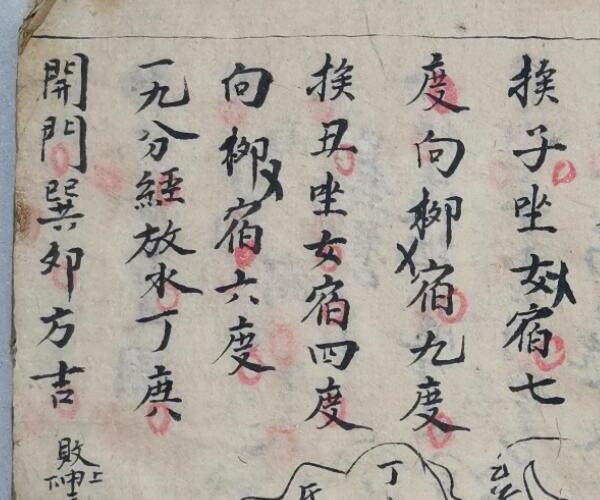 挨子坐女宿七
度向柳宿九度
挨丑坐女宿四度
向柳宿六度
一九分經放水丁庚
開門巽卯方吉
敗
上
丁